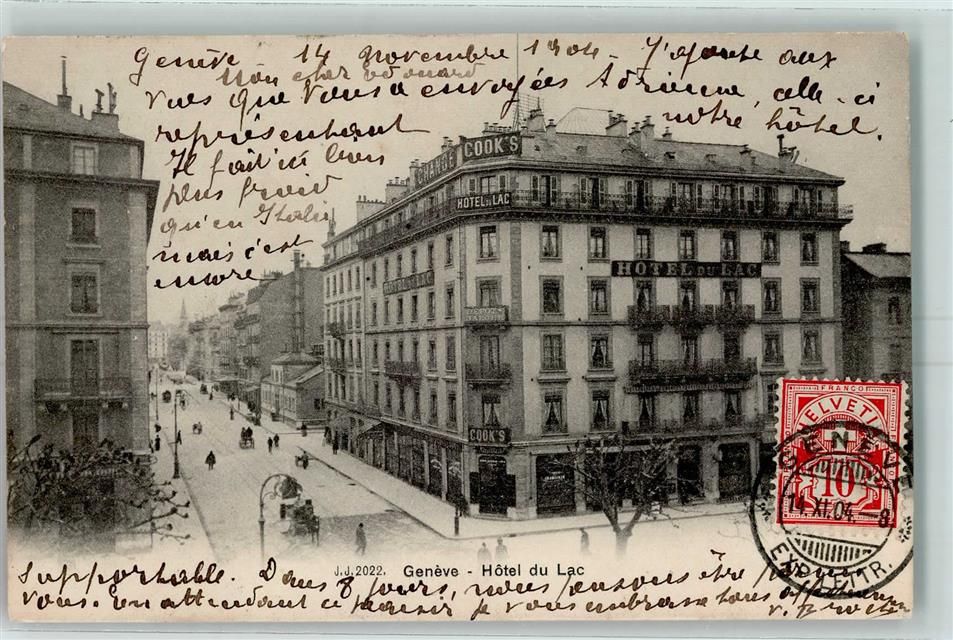 Genève 14 Novembre 1904. J'ajoute aux
Mon cher Edouard
vues que vous a envoyées Adrienne, celle-ci
représentant notre hôtel.
Il fait ici bien
plus froid
qu'en Italie
mais c'est
encore
CHANGE COOK'S
HOTEL DU LAC
HOTEL DU LAC
COOK'S
FRANCO
HELVETIA
10
GENÈVE
14.XI.04.-8
EXP. LETTR.
J.J.2022. Genève - Hôtel du Lac
supportable. Dans 8 jours, nous pensons être
vous. En attendant ce plaisir je vous embrasse tous